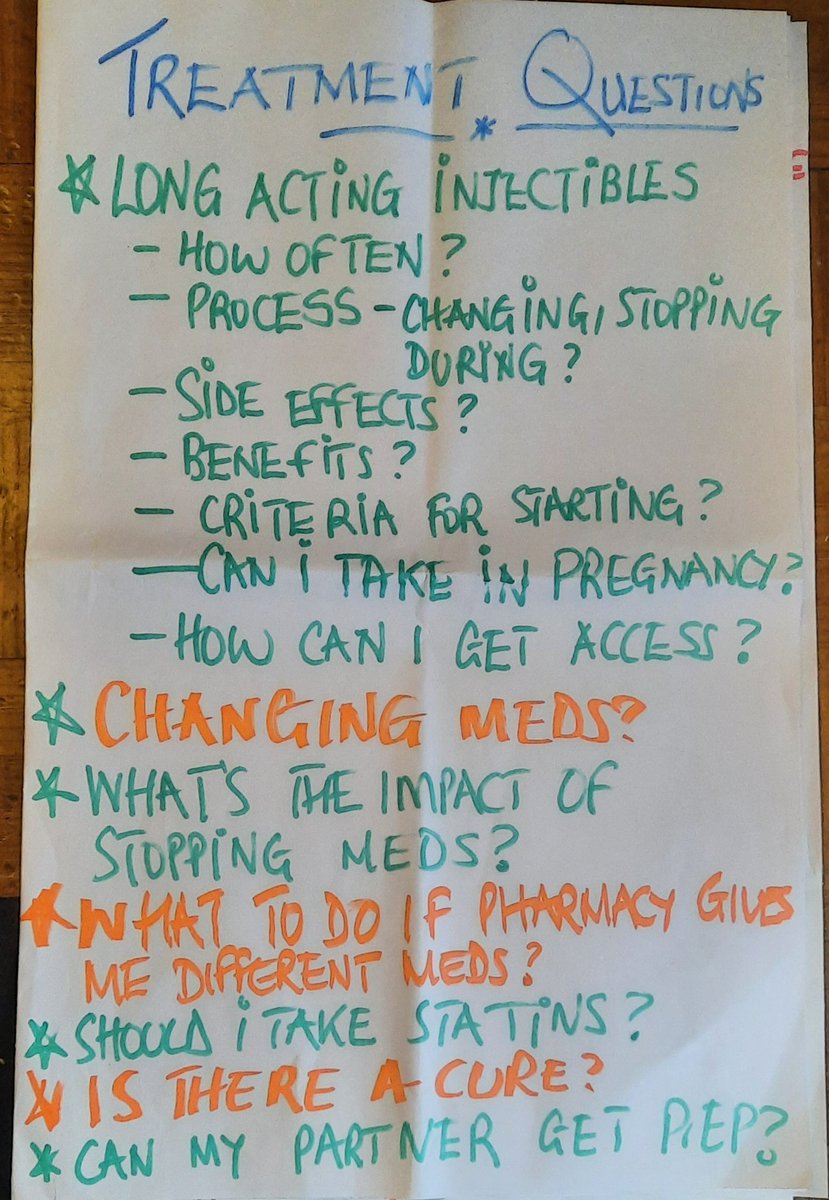 TREATMENT QUESTIONS
* LONG ACTING INJECTIBLES
- HOW OFTEN?
- PROCESS - CHANGING, STOPPING
DURING?
- SIDE EFFECTS?
- BENEFITS?
- CRITERIA FOR STARTING?
- CAN I TAKE IN PREGNANCY?
- HOW CAN I GET ACCESS?
* CHANGING MEDS?
* WHAT'S THE IMPACT OF
STOPPING MEDS?
* WHAT TO DO IF PHARMACY GIVES
ME DIFFERENT MEDS?
* SHOULD I TAKE STATINS?
* IS THERE A CURE?
* CAN MY PARTNER GET PrEP?